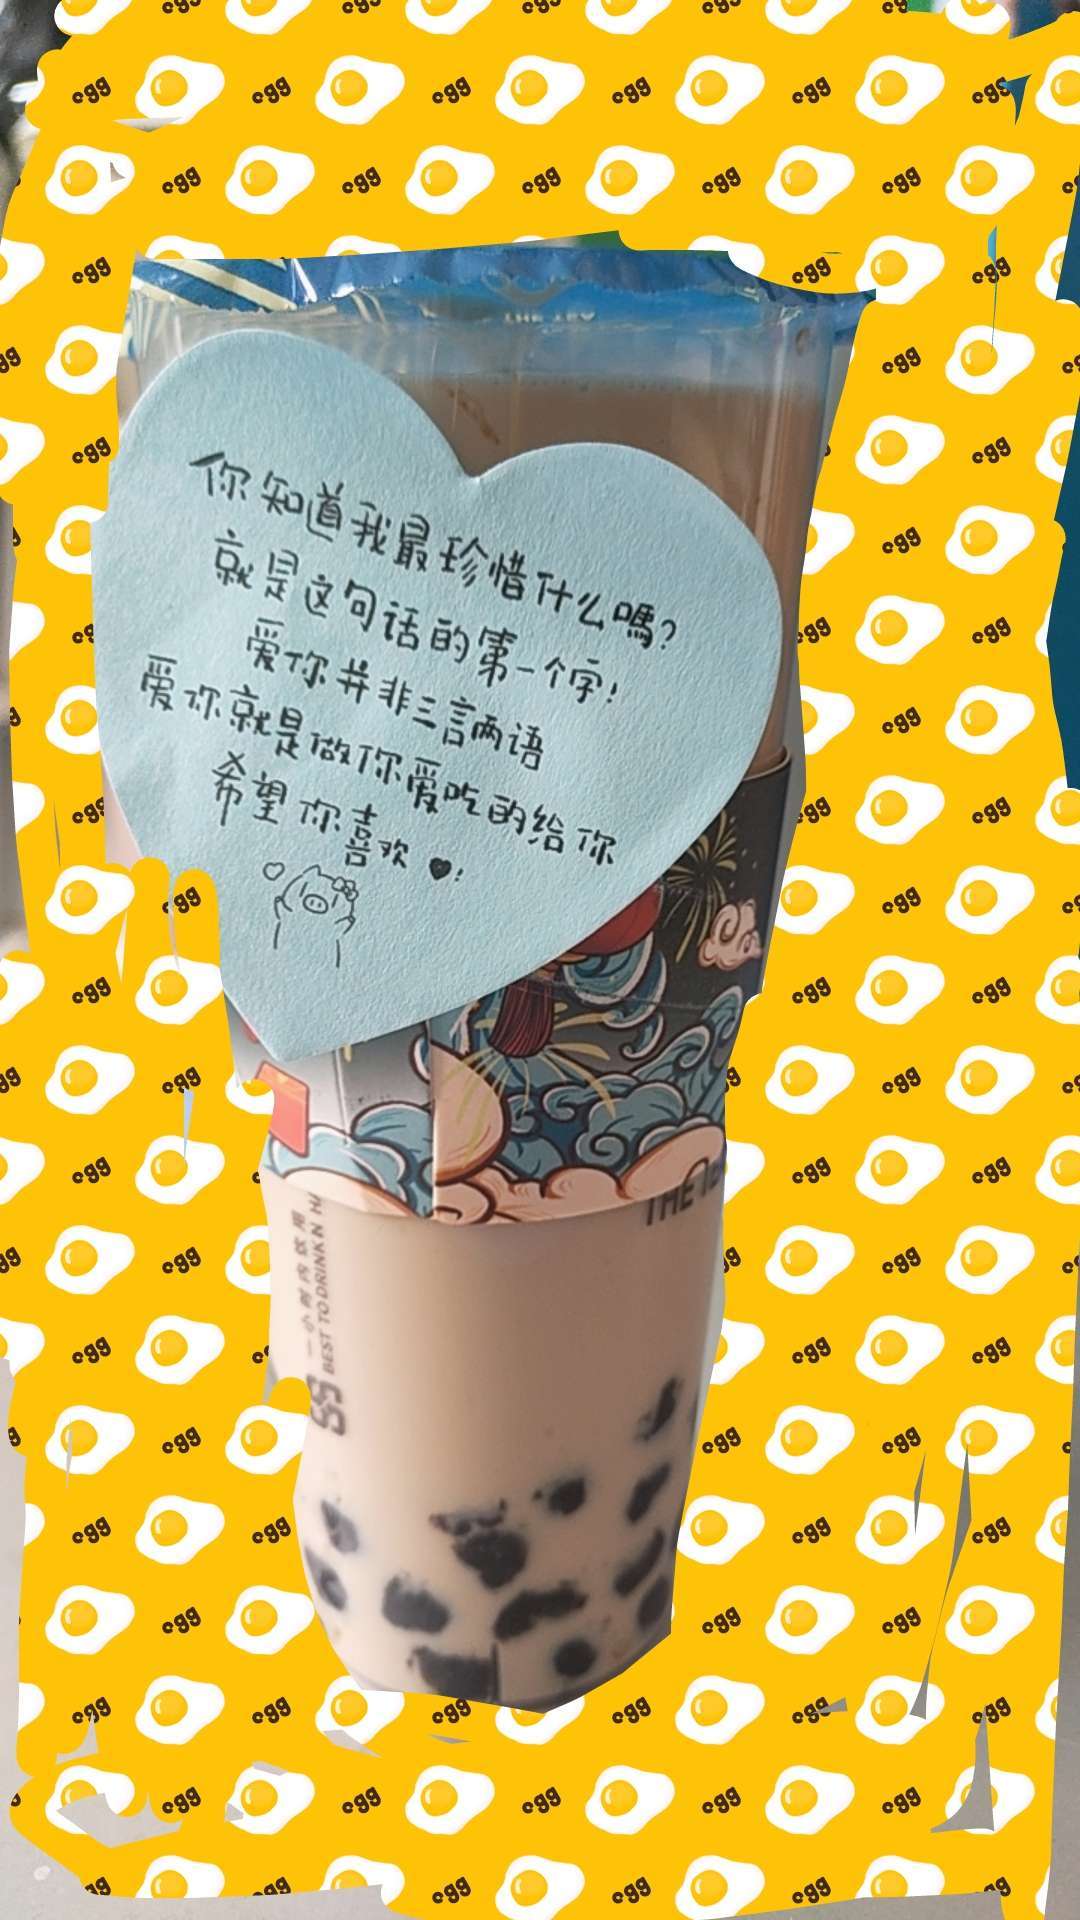 你知道我最珍惜什么嗎?
就是这句话的第一个字!
爱你并非三言两语
爱你就是做你爱吃的给你
希望你喜欢♥!
一小时内饮用
BEST TO DRINK
THE
egg